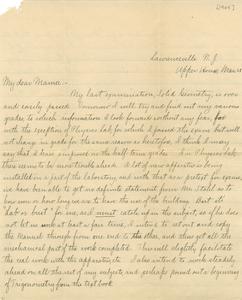 [1905]
Lawrenceville N.J.
Upper House, Mar.
My dear Mama:-
My last examination, Solid Geometry, is over
and easily passed. Tomorrow I will try and find out my various
grades to which information I look forward without any fear, for
with the exception of Physics Lab, for which I passed the exams but will
not change in grade for the same reason as heretofore, I think I may
say that I have improved on the half term grades. In the Physics Lab
there seems to be more trouble ahead. A lot of new apparatus is being
installed in a part of the laboratory, and with that as a pretext for exams,
we have been able to get no definite statement from Mr. as to
how soon or how long we are to have the use of the building. But it's
"late or bust" for me, and must catch up in the subject, so if he does
not let us work at least so far time, I intend to set out and copy
the Manual through from one end to the other, and thus get all the
mechanical part of the work completed. This will slightly facilitate
the real work with the apparatus. I also intend to work steadily
ahead on all the rest of my subjects and perhaps pound out a beginning
of Trigonometry from the text book